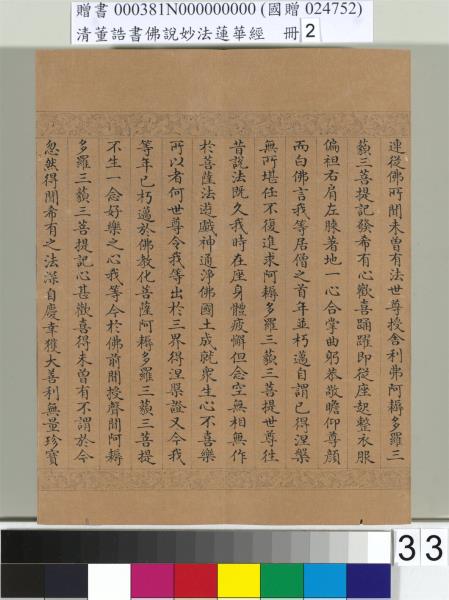 贈書 000381N000000000 (國贈 024752)
清董誥書佛說妙法蓮華經 冊 2
連從佛所聞未曾有法世尊授舍利弗阿耨多羅三
藐三菩提記發希有心歡喜踊躍即從座起整衣服
偏袒右肩右膝著地一心合掌曲躬恭敬瞻仰尊顏
而白佛言我等居僧之首年並朽邁自謂已得涅槃
無所堪任不復進求阿耨多羅三藐三菩提世尊往
昔說法既久我時在座身體疲懈但念空無相無作
於菩薩法遊戲神通淨佛國土成就眾生心不喜樂
所以者何世尊令我等出於三界得涅槃證又今我
等年已朽邁於佛教化菩薩阿耨多羅三藐三菩提
不生一念好樂之心我等今於佛前聞授聲聞阿耨
多羅三藐三菩提記心甚歡喜得未曾有不謂於今
忽然得聞希有之法深自慶幸獲大善利無量珍寶
33